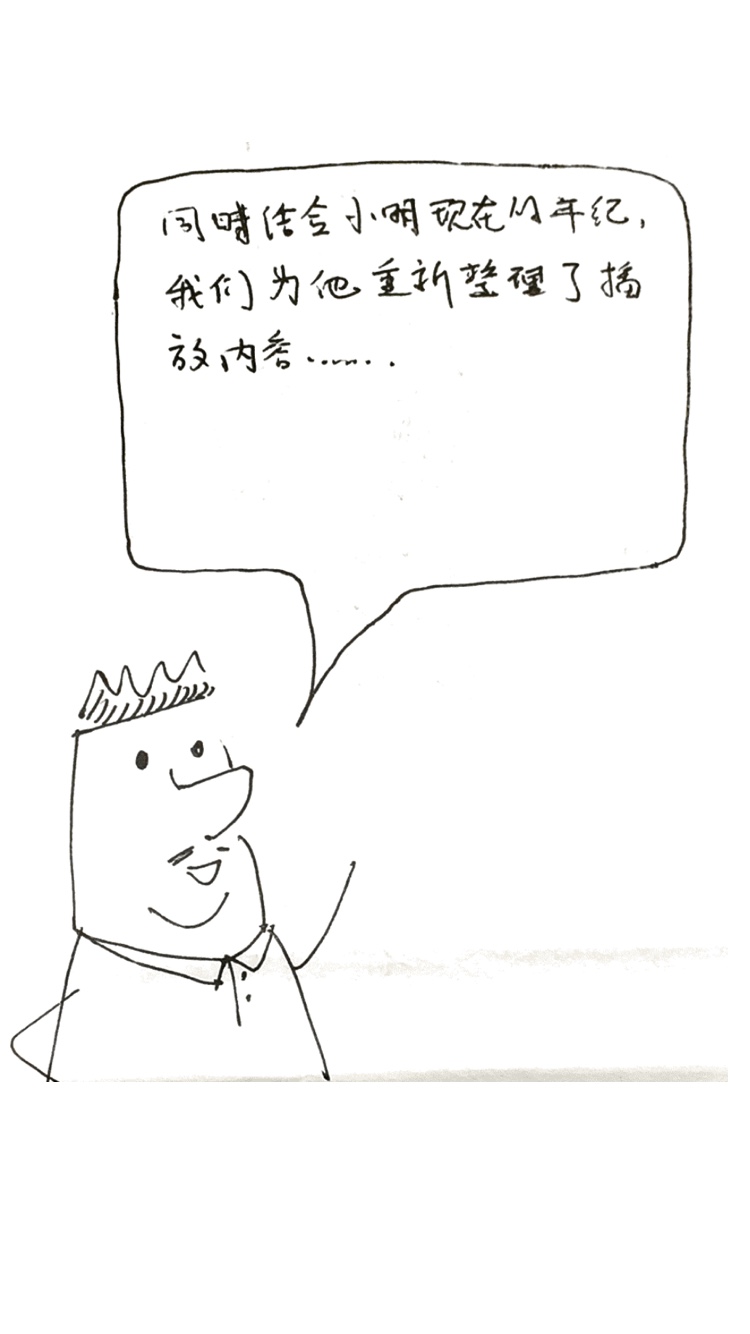 同时结合小明现在的年纪，
我们为他重新整理了播
放内容.......